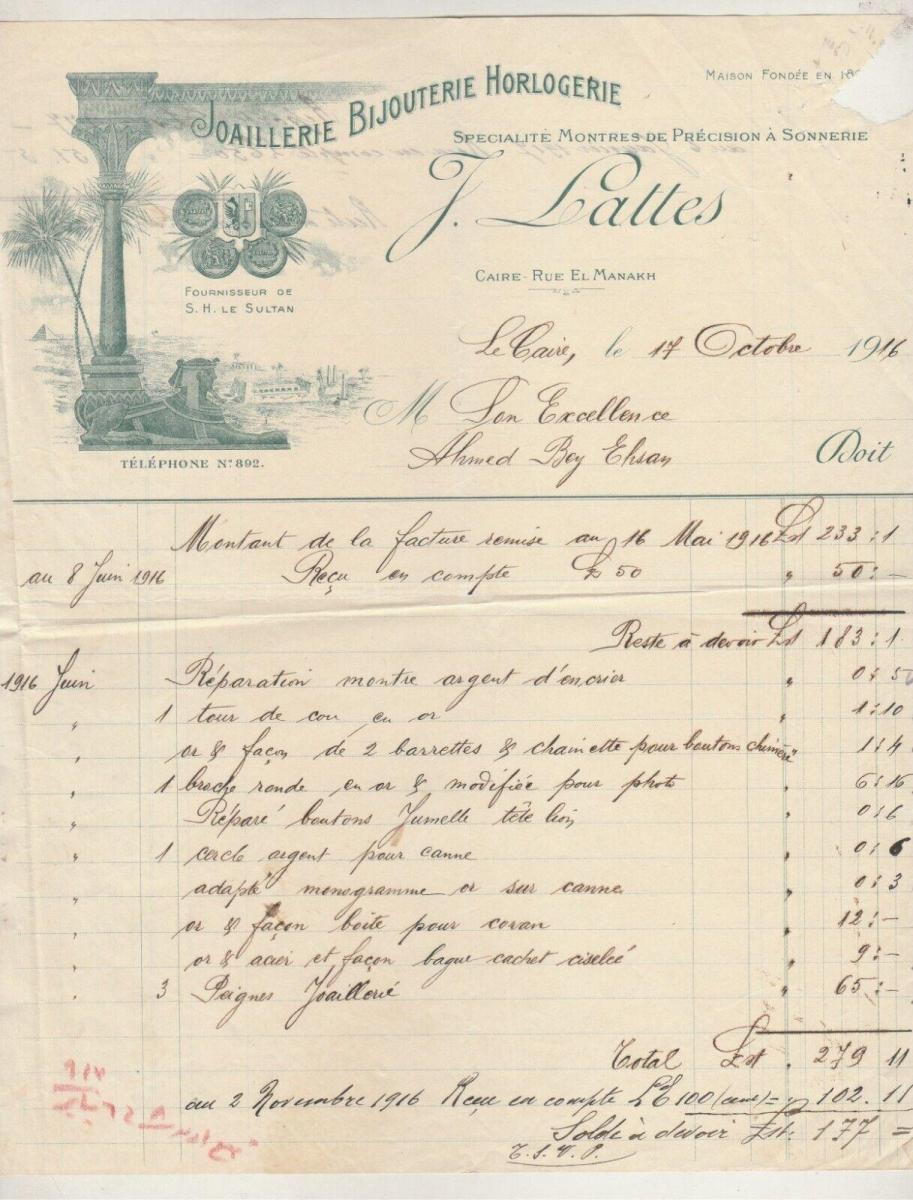 MAISON FONDÉE EN
JOAILLERIE BIJOUTERIE HORLOGERIE
SPECIALITÉ MONTRES DE PRÉCISION À SONNERIE
J. Lattes
CAIRE - RUE EL MANAKH
FOURNISSEUR DE
S. H. LE SULTAN
TÉLÉPHONE N° 892.
Le Caire, le 17 Octobre 1916
M Son Excellence
Ahmed Bey Ehsan Doit
Montant de la facture remise au 16 Mai 1916 £st 233 : 1
au 8 Juin 1916 Reçu en compte £ 50 " 50 : -
Reste à devoir £st 183 : 1
1916 Juin Réparation montre argent d'encrier " 0 : 5
" 1 tour de cou en or " 1 : 10
" or & façon de 2 barrettes & chainette pour boutons chimère " 1 : 4
" 1 broche ronde en or & modifiée pour photo " 6 : 16
" Réparé boutons Jumelle tête lion " 0 : 6
" 1 cercle argent pour canne " 0 : 6
" adapté monogramme or sur canne " 0 : 3
" or & façon boite pour coran " 12 : -
" or & acier et façon bague cachet ciselée " 9 : -
" 3 Peignes Joaillerie " 65 : -
Total £st . 279 11
au 2 Novembre 1916 Reçu en compte L.E 100 (cent) = 102 . 11
Solde à devoir £st : 177 =
T. S. V. P.